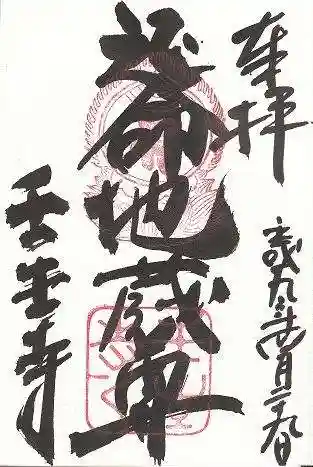 奉拝
延命地蔵尊
平成九年 月二九日
壬生寺